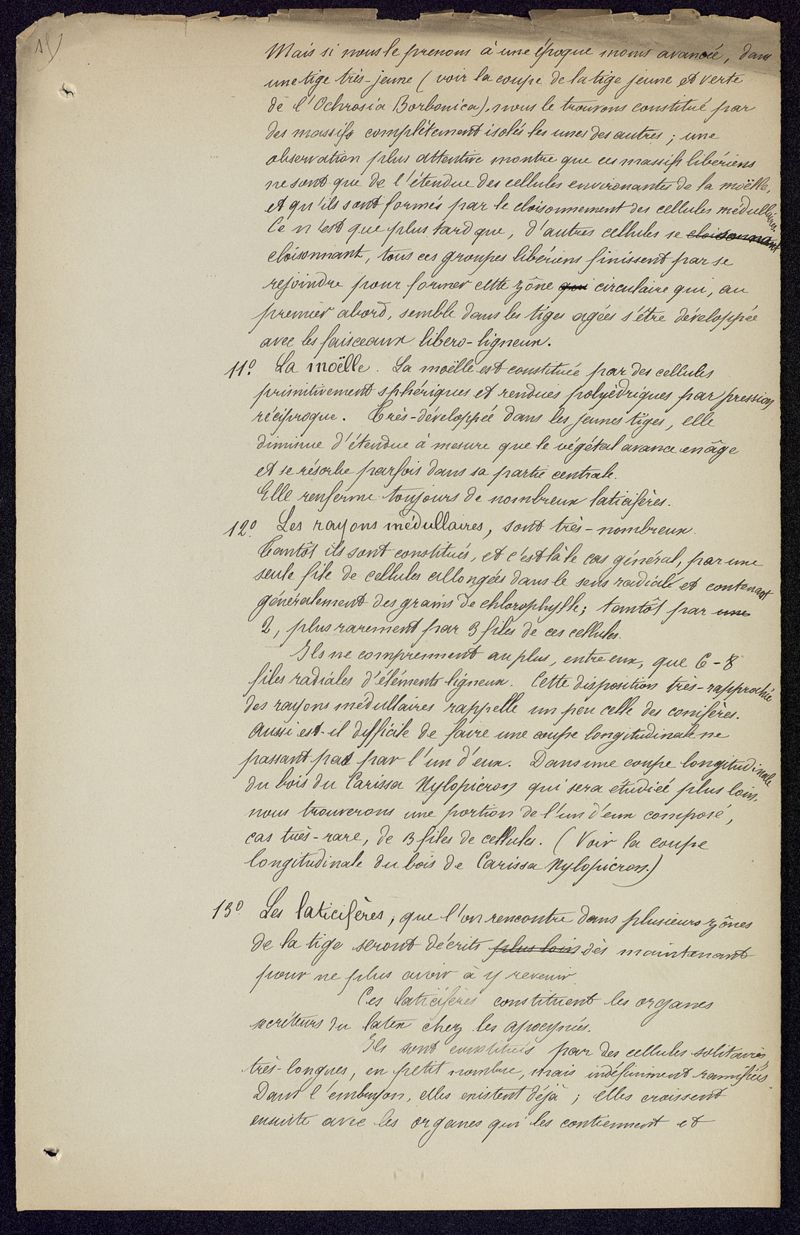 Mais si nous le prenons à une époque moins avancée, dans
une tige très-jeune (voir la coupe de la tige jeune et verte
de l'Ochrosia Borbonica), nous le trouvons constitué par
des massifs complètement isolés les unes des autres ; une
observation plus attentive montre que ces massifs libériens
ne sont que de l'étendue des cellules environantes de la moëlle,
et qu'ils sont formés par le cloisonnement des cellules médullaires
Ce n'est que plus tard que, d'autres cellules se cloisonnant
cloisonnant, tous ces groupes libériens finissent par se
rejoindre pour former cette zône qui circulaire qui, au
premier abord, semble dans les tiges agées s'être développée
avec les faisceaux libero-ligneux.
11º La moëlle. La moëlle est constituée par des cellules
primitivement sphériques et rendues polyèdriques par pression
réciproque. Très-développée dans les jeunes tiges, elle
diminue d'étendue à mesure que le végétal avance en âge
et se résorbe parfois dans sa partie centrale.
Elle renferme toujours de nombreux laticifères.
12º Les rayons médullaires, sont très-nombreux.
Tantôt ils sont constitués, et c'est là le cas général, par une
seule file de cellules allongées dans le sens radial et contenant
généralement des grains de chlorophylle ; tantôt par une
2, plus rarement par 3 files de ces cellules.
Ils ne comprennent au plus, entre eux, que 6-8
files radiales d'éléments ligneux. Cette disposition très-rapprochée
des rayons médullaires rappelle un peu celle des conifères.
Aussi est-il difficile de faire une coupe longitudinale ne
passant pas par l'un d'eux. Dans une coupe longitudinale
du bois du Carissa Xylopicron qui sera étudiée plus loin,
nous trouverons une portion de l'un d'eux composé,
cas très-rare, de 3 files de cellules. (Voir la coupe
longitudinale du bois de Carissa Xylopicron)
13º Les laticifères, que l'on rencontre dans plusieurs zônes
de la tige seront décrits plus loin dès maintenant
pour ne plus avoir à y revenir.
Ces laticifères constituent les organes
secréteurs du latex chez les apocynées.
Ils sont constitués par des cellules solitaires,
très-longues, en petit nombre, mais indéfiniment ramifiées
Dans l'embryon, elles existent déjà ; elles croissent
ensuite avec les organes qui les contiennent et